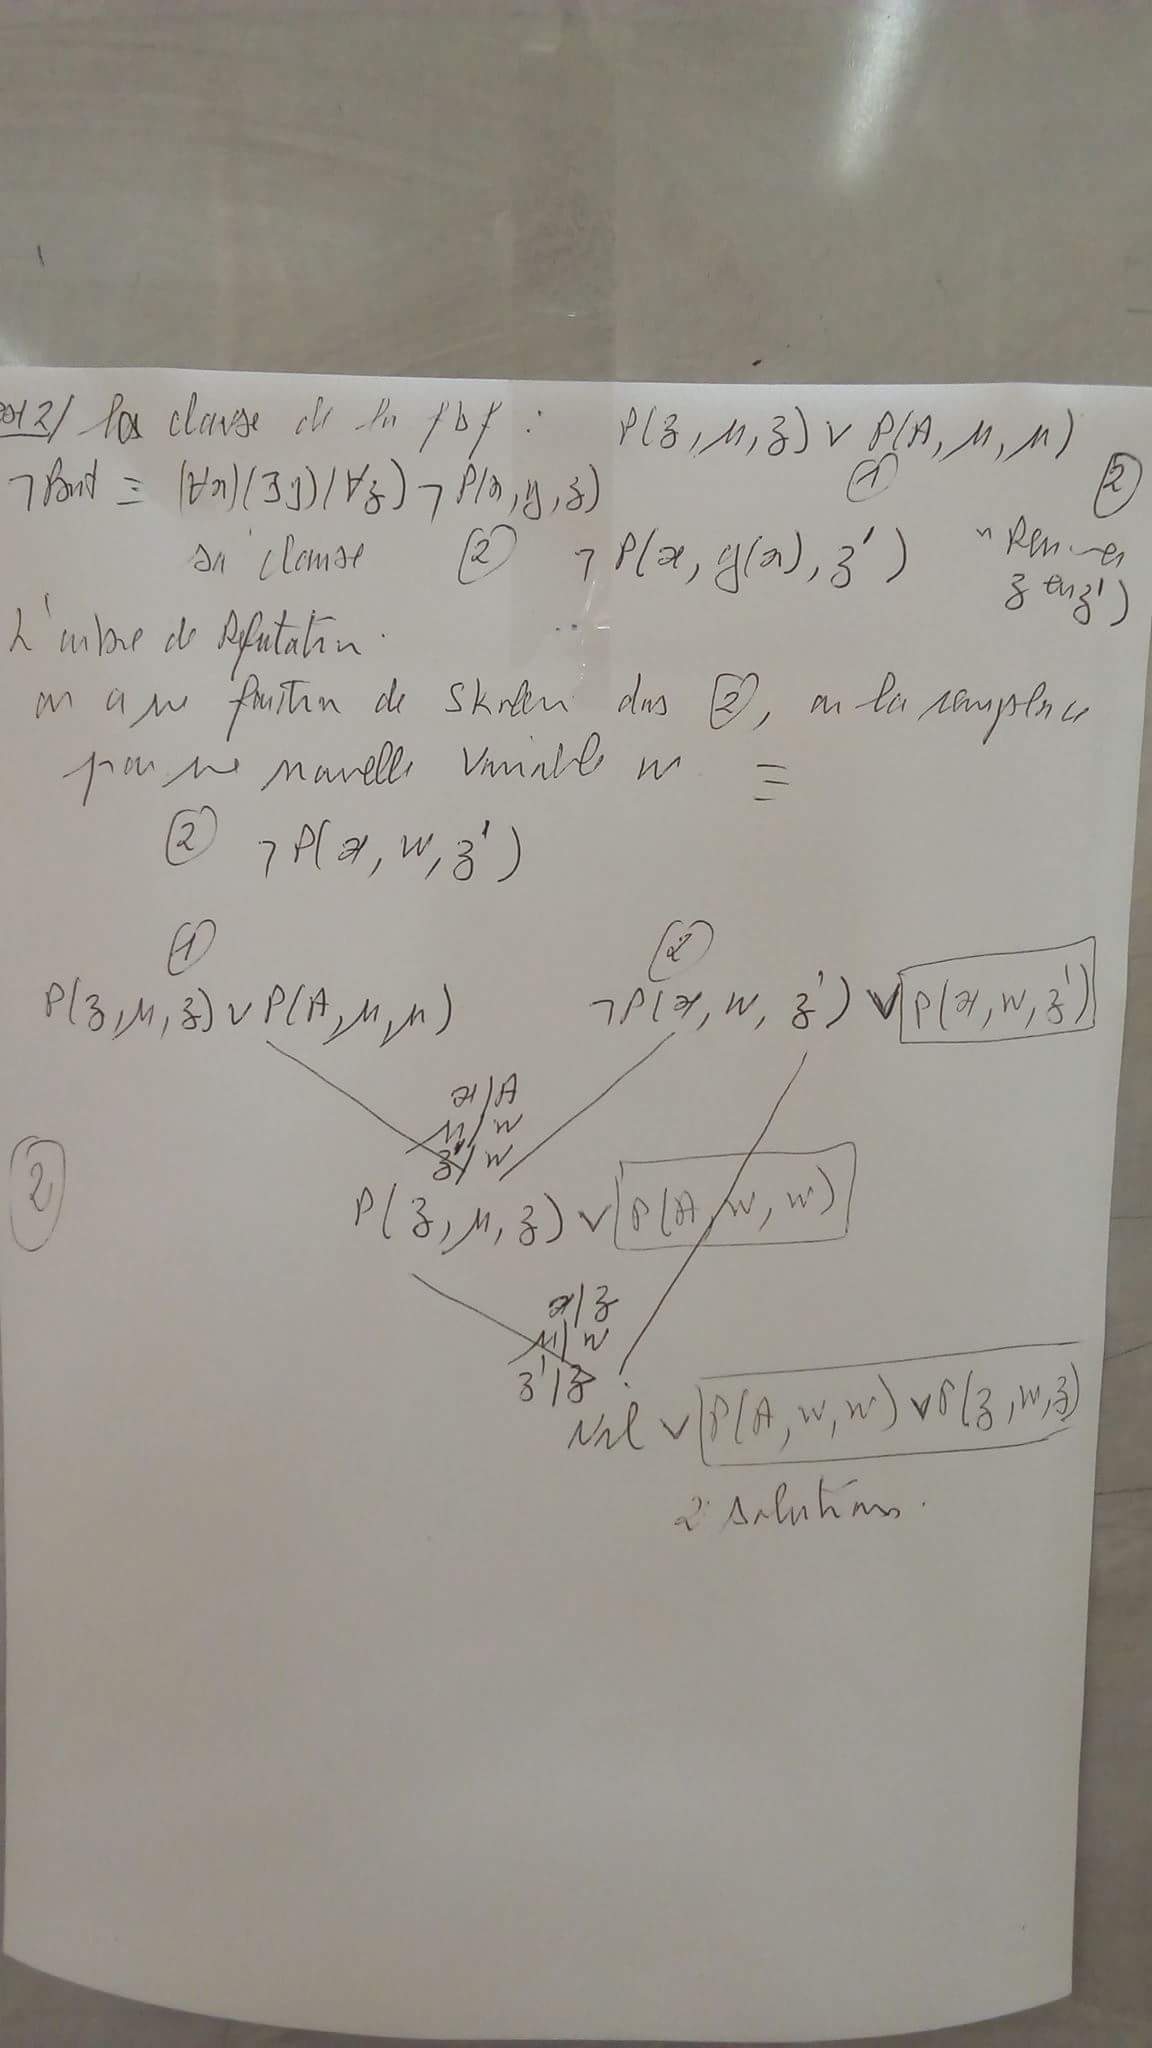 2/ la clause de la fbf : P(z,u,z) ∨ P(A,u,u)
① ②
¬But ≡ (∀x)(∃y)(∀z) ¬P(x,y,z)
sa clause ② ¬P(x, y(x), z')
z en z')
L'arbre de Réfutation.
on a une fonction de Skolem dans ②, on la remplace
par une nouvelle variable w ≡
② ¬P(x, w, z')
① ②
P(z,u,z) ∨ P(A,u,u) ¬P(x, w, z') ∨ P(x, w, z')
x/A
u/w
z'/w
②
P(z,u,z) ∨ P(A,w,w)
x/z
u/w
z'/z
Nil ∨ P(A,w,w) ∨ P(z,w,z)
2 solutions.